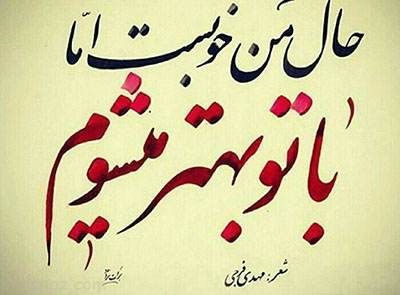 حال من خوبست امّا
با تو بهتر میشوم
شعر: مهدی فرجی